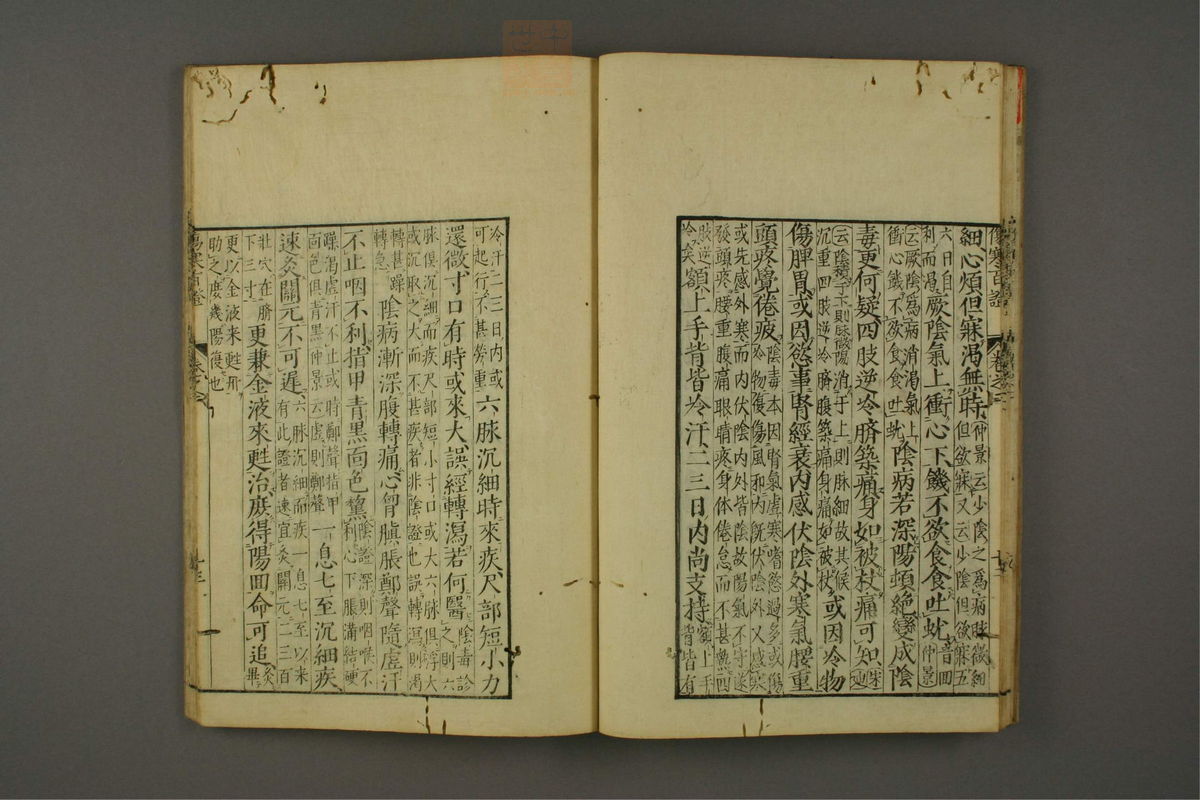 細心煩但寐渴無時仲景云少陰之爲病脉微細
但欲寐又云少陰但欲寐五
六日自
利而渴厥陰氣上衝心下饑不欲食食吐蚘音回仲景
云厥陰爲病消渴氣上
衝心饑不欲食食吐蚘陰病若深陽頓絶變成陰
毒更何疑四肢逆冷臍築痛身如被杖痛可知
云陰
沉重四肢逆冷臍腹築痛身痛如被杖或因冷物
消于上則脉細故其候
傷脾胃或因慾事腎經衰内感伏陰外寒氣腰重
頭疼覺倦疲陰毒本因腎氣虛寒嗜慾過多或傷
冷物復傷風邪内既伏陰外又感寒
或先感外寒而内伏陰内外皆陰故陽氣不守遂
發頭疼腰重腹痛眼睛疼身體倦怠而不甚熱四
肢逆
冷矣額上手背皆冷汗二三日内尚支持額上手
背皆有
冷汗二三日内或
可起行不甚勞重六脉沉細時來疾尺部短小力
還微寸口有時或來大誤經轉瀉若何醫陰毒診
之則六
脉俱沉細而疾尺部短小寸口或大六脉俱浮大
或沉取之大而不甚疾者非陰證也誤轉瀉則渴
轉甚躁
轉急陰病漸深腹轉痛心胷䐜脹鄭聲隨虛汗
不止咽不利指甲青黑面色黧陰證深則咽喉不
利心下脹滿結硬
躁渴虛汗不止或時鄭聲指甲
面色俱青黑仲景云虛則鄭聲一息七至沉細疾
速灸關元不可遲六脉沉細而疾一息七至以來
有此證者速宜灸關元二三百
壯穴在臍
下三寸更兼金液來甦治庶得陽回命可追灸畢
更以金液來甦丹
助之庶幾陽復也
傷寒百證